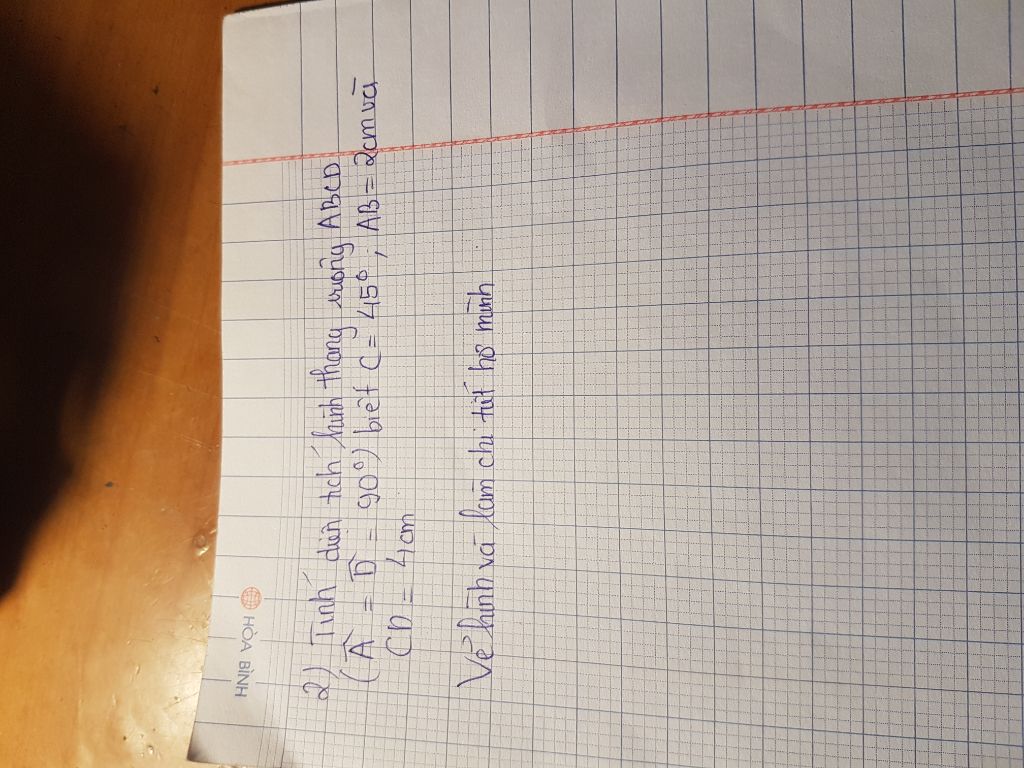 HÒA BÌNH
2) Tính diện tích hình thang vuông ABCD
(Â = D̂ = 90°) biết C = 45°, AB = 2cm và
CD = 4cm
Vẽ hình và làm chi tiết hộ mình